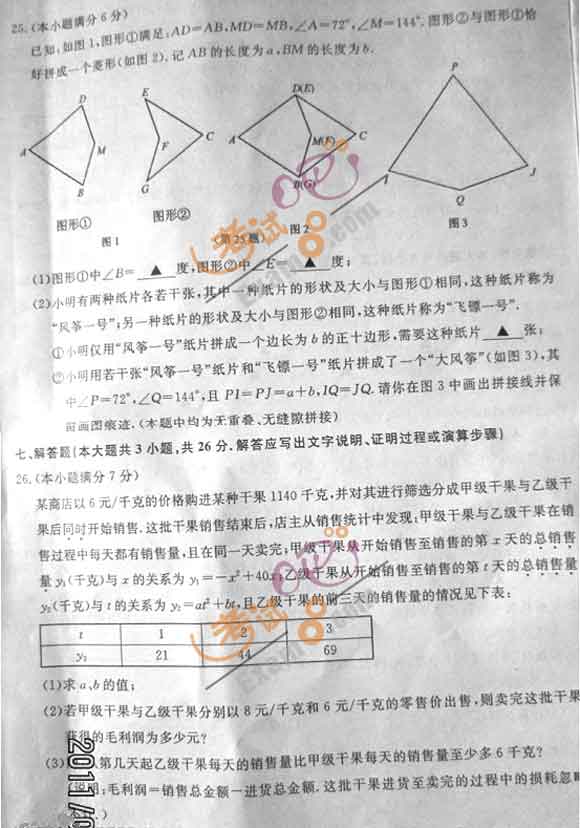 25.(本小题满分6分)
已知:如图1,图形①满足:AD=AB,MD=MB,∠A=72°,∠M=144°.图形②与图形①恰
好拼成一个菱形(如图2).记AB的长度为a,BM的长度为b.
D
A
M
B
图形①
E
F
C
G
图形②
图1
D(E)
A
M(F)
C
B(G)
图2
(第25题)
P
I
J
Q
图3
(1)图形①中∠B= ▲ 度,图形②中∠E= ▲ 度;
(2)小明有两种纸片各若干张,其中一种纸片的形状及大小与图形①相同,这种纸片称为
“风筝一号”;另一种纸片的形状及大小与图形②相同,这种纸片称为“飞镖一号”.
①小明仅用“风筝一号”纸片拼成一个边长为b的正十边形,需要这种纸片 ▲ 张;
②小明用若干张“风筝一号”纸片和“飞镖一号”纸片拼成了一个“大风筝”(如图3),其
中∠P=72°,∠Q=144°,且PI=PJ=a+b,IQ=JQ.请你在图3中画出拼接线并保
画图痕迹.(本题中均为无重叠、无缝隙拼接)
七、解答题(本大题共3小题,共26分.解答应写出文字说明、证明过程或演算步骤)
26.(本小题满分7分)
某商店以6元/千克的价格购进某种干果1140千克,并对其进行筛选分成甲级干果与乙级干
果后同时开始销售.这批干果销售结束后,店主从销售统计中发现:甲级干果与乙级干果在销
售过程中每天都有销售量,且在同一天卖完;甲级干果从开始销售至销售的第x天的总销售
量y₁(千克)与x的关系为y₁=-x²+40x;乙级干果从开始销售至销售的第t天的总销售量
y₂(千克)与t的关系为y₂=at²+bt,且乙级干果的前三天的销售量的情况见下表:
t 1 2 3
y₂ 21 44 69
(1)求a、b的值;
(2)若甲级干果与乙级干果分别以8元/千克和6元/千克的零售价出售,则卖完这批干果
获得的毛利润为多少元?
(3) 第几天起乙级干果每天的销售量比甲级干果每天的销售量至少多6千克?
说明:毛利润=销售总金额-进货总金额.这批干果进货至卖完的过程中的损耗忽
考试
Exam8.com
考试
2011/0